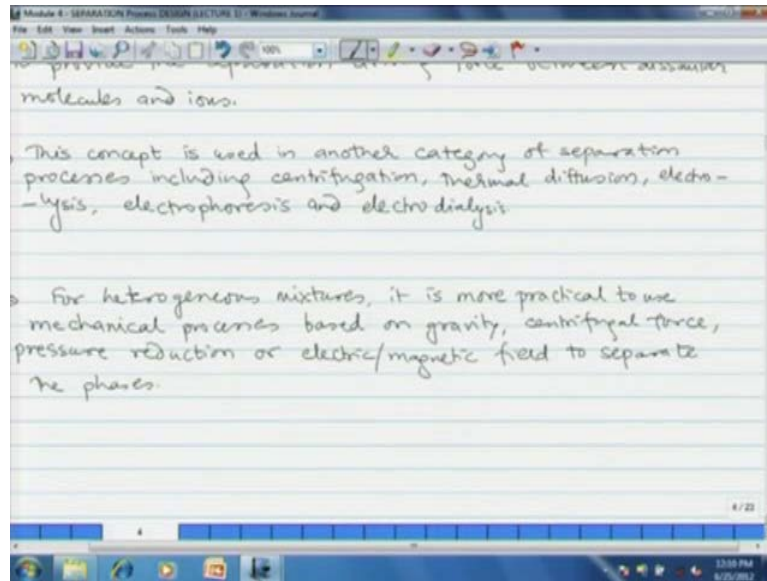 Module 4 - SEPARATION Process DESIGN (LECTURE 1) - Windows Journal
File Edit View Insert Actions Tools Help
100%
to provide the separation driving force between dissimilar
molecules and ions.
This concept is used in another category of separation
processes including centrifugation, thermal diffusion, electro-
-lysis, electrophoresis and electrodialysis.
For heterogeneous mixtures, it is more practical to use
mechanical processes based on gravity, centrifugal force,
pressure reduction or electric/magnetic field to separate
the phases.
4/22
4
12:10 PM
6/25/2012